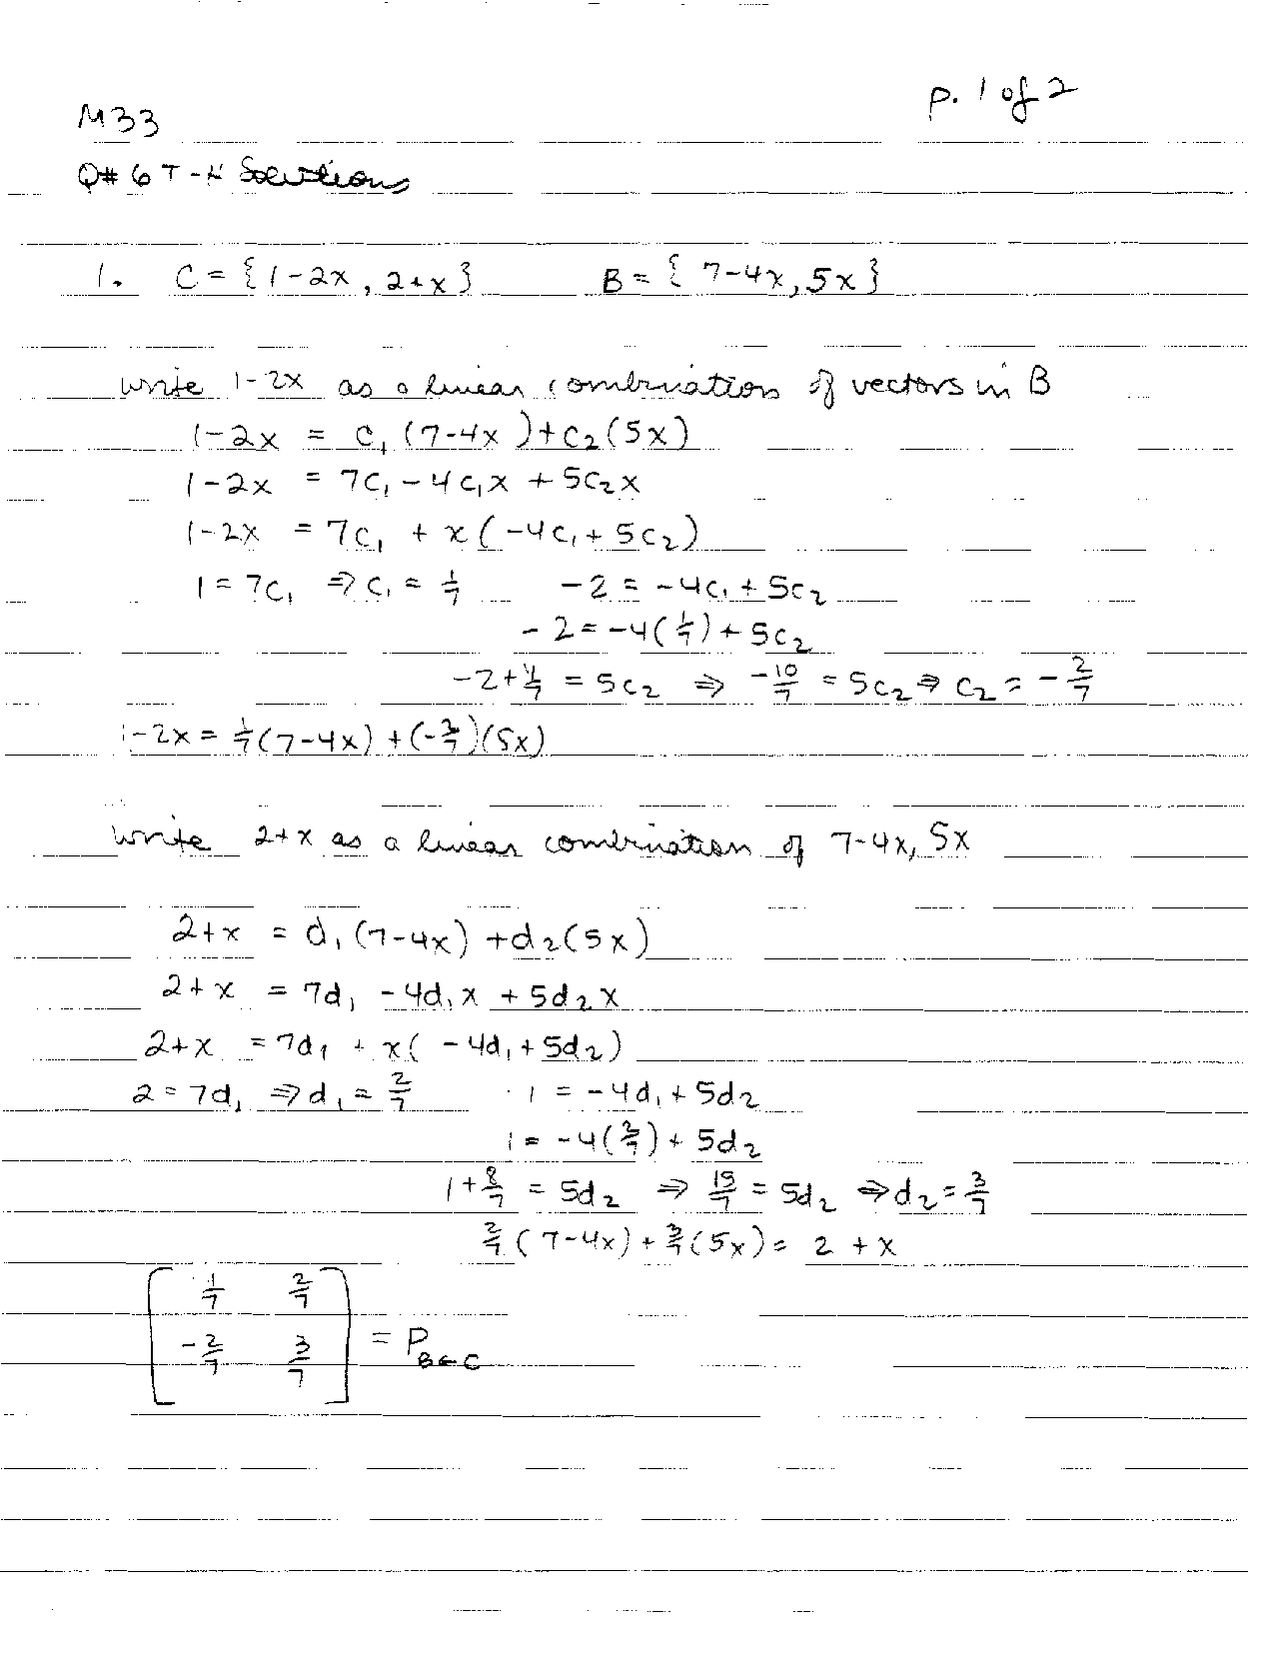 p. 1 of 2
M33
Q# 6 T-H Solutions
1. C = {1-2x, 2+x} B = {7-4x, 5x}
write 1-2x as a linear combination of vectors in B
1-2x = c₁(7-4x)+c₂(5x)
1-2x = 7c₁-4c₁x+5c₂x
1-2x = 7c₁ + x(-4c₁+5c₂)
1=7c₁ ⇒ c₁ = 1/7 -2 = -4c₁+5c₂
-2=-4(1/7)+5c₂
-2+4/7 = 5c₂ ⇒ -10/7 = 5c₂ ⇒ c₂ = -2/7
1-2x = 1/7(7-4x)+(-2/7)(5x)
write 2+x as a linear combination of 7-4x, 5x
2+x = d₁(7-4x)+d₂(5x)
2+x = 7d₁-4d₁x+5d₂x
2+x = 7d₁ + x(-4d₁+5d₂)
2=7d₁ ⇒ d₁ = 2/7 1 = -4d₁+5d₂
1 = -4(2/7)+5d₂
1+8/7 = 5d₂ ⇒ 15/7 = 5d₂ ⇒ d₂ = 3/7
2/7(7-4x)+3/7(5x) = 2+x
[1/7 2/7
-2/7 3/7] = P B←C